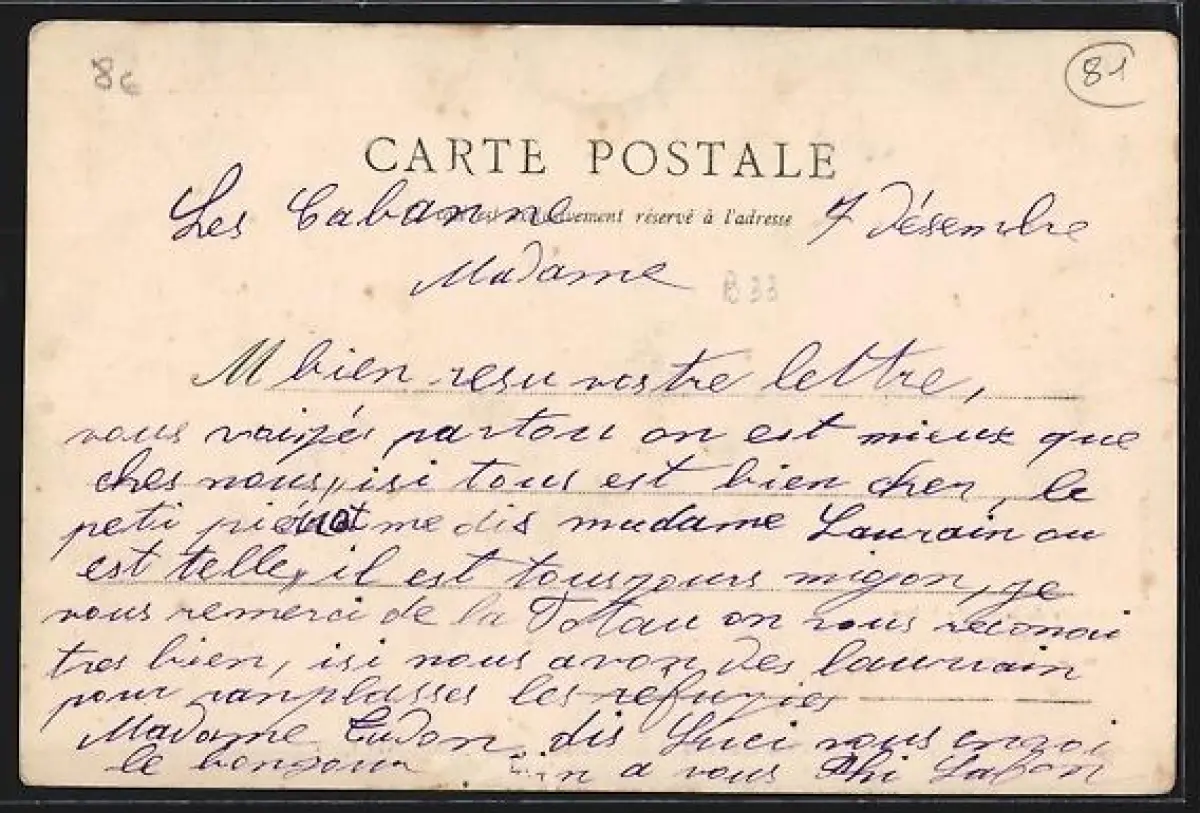 86
81
CARTE POSTALE
Les Cabanne 7 désembre
vement réservé à l'adresse
Madame
B33
M bien resu vostre lettre,
vous voiyés partou on est mieux que
ches nous, isi tous est bien cher, le
peti me dis madame Laurain ou
est telle, il est tousjours migon, je
vous remerci de la on vous reconoi
tres bien, isi nous avon des laurrain
pour ranplasses les réfugies
Madame dis Luci vous envoi
le bongour a vous Phi Lafon